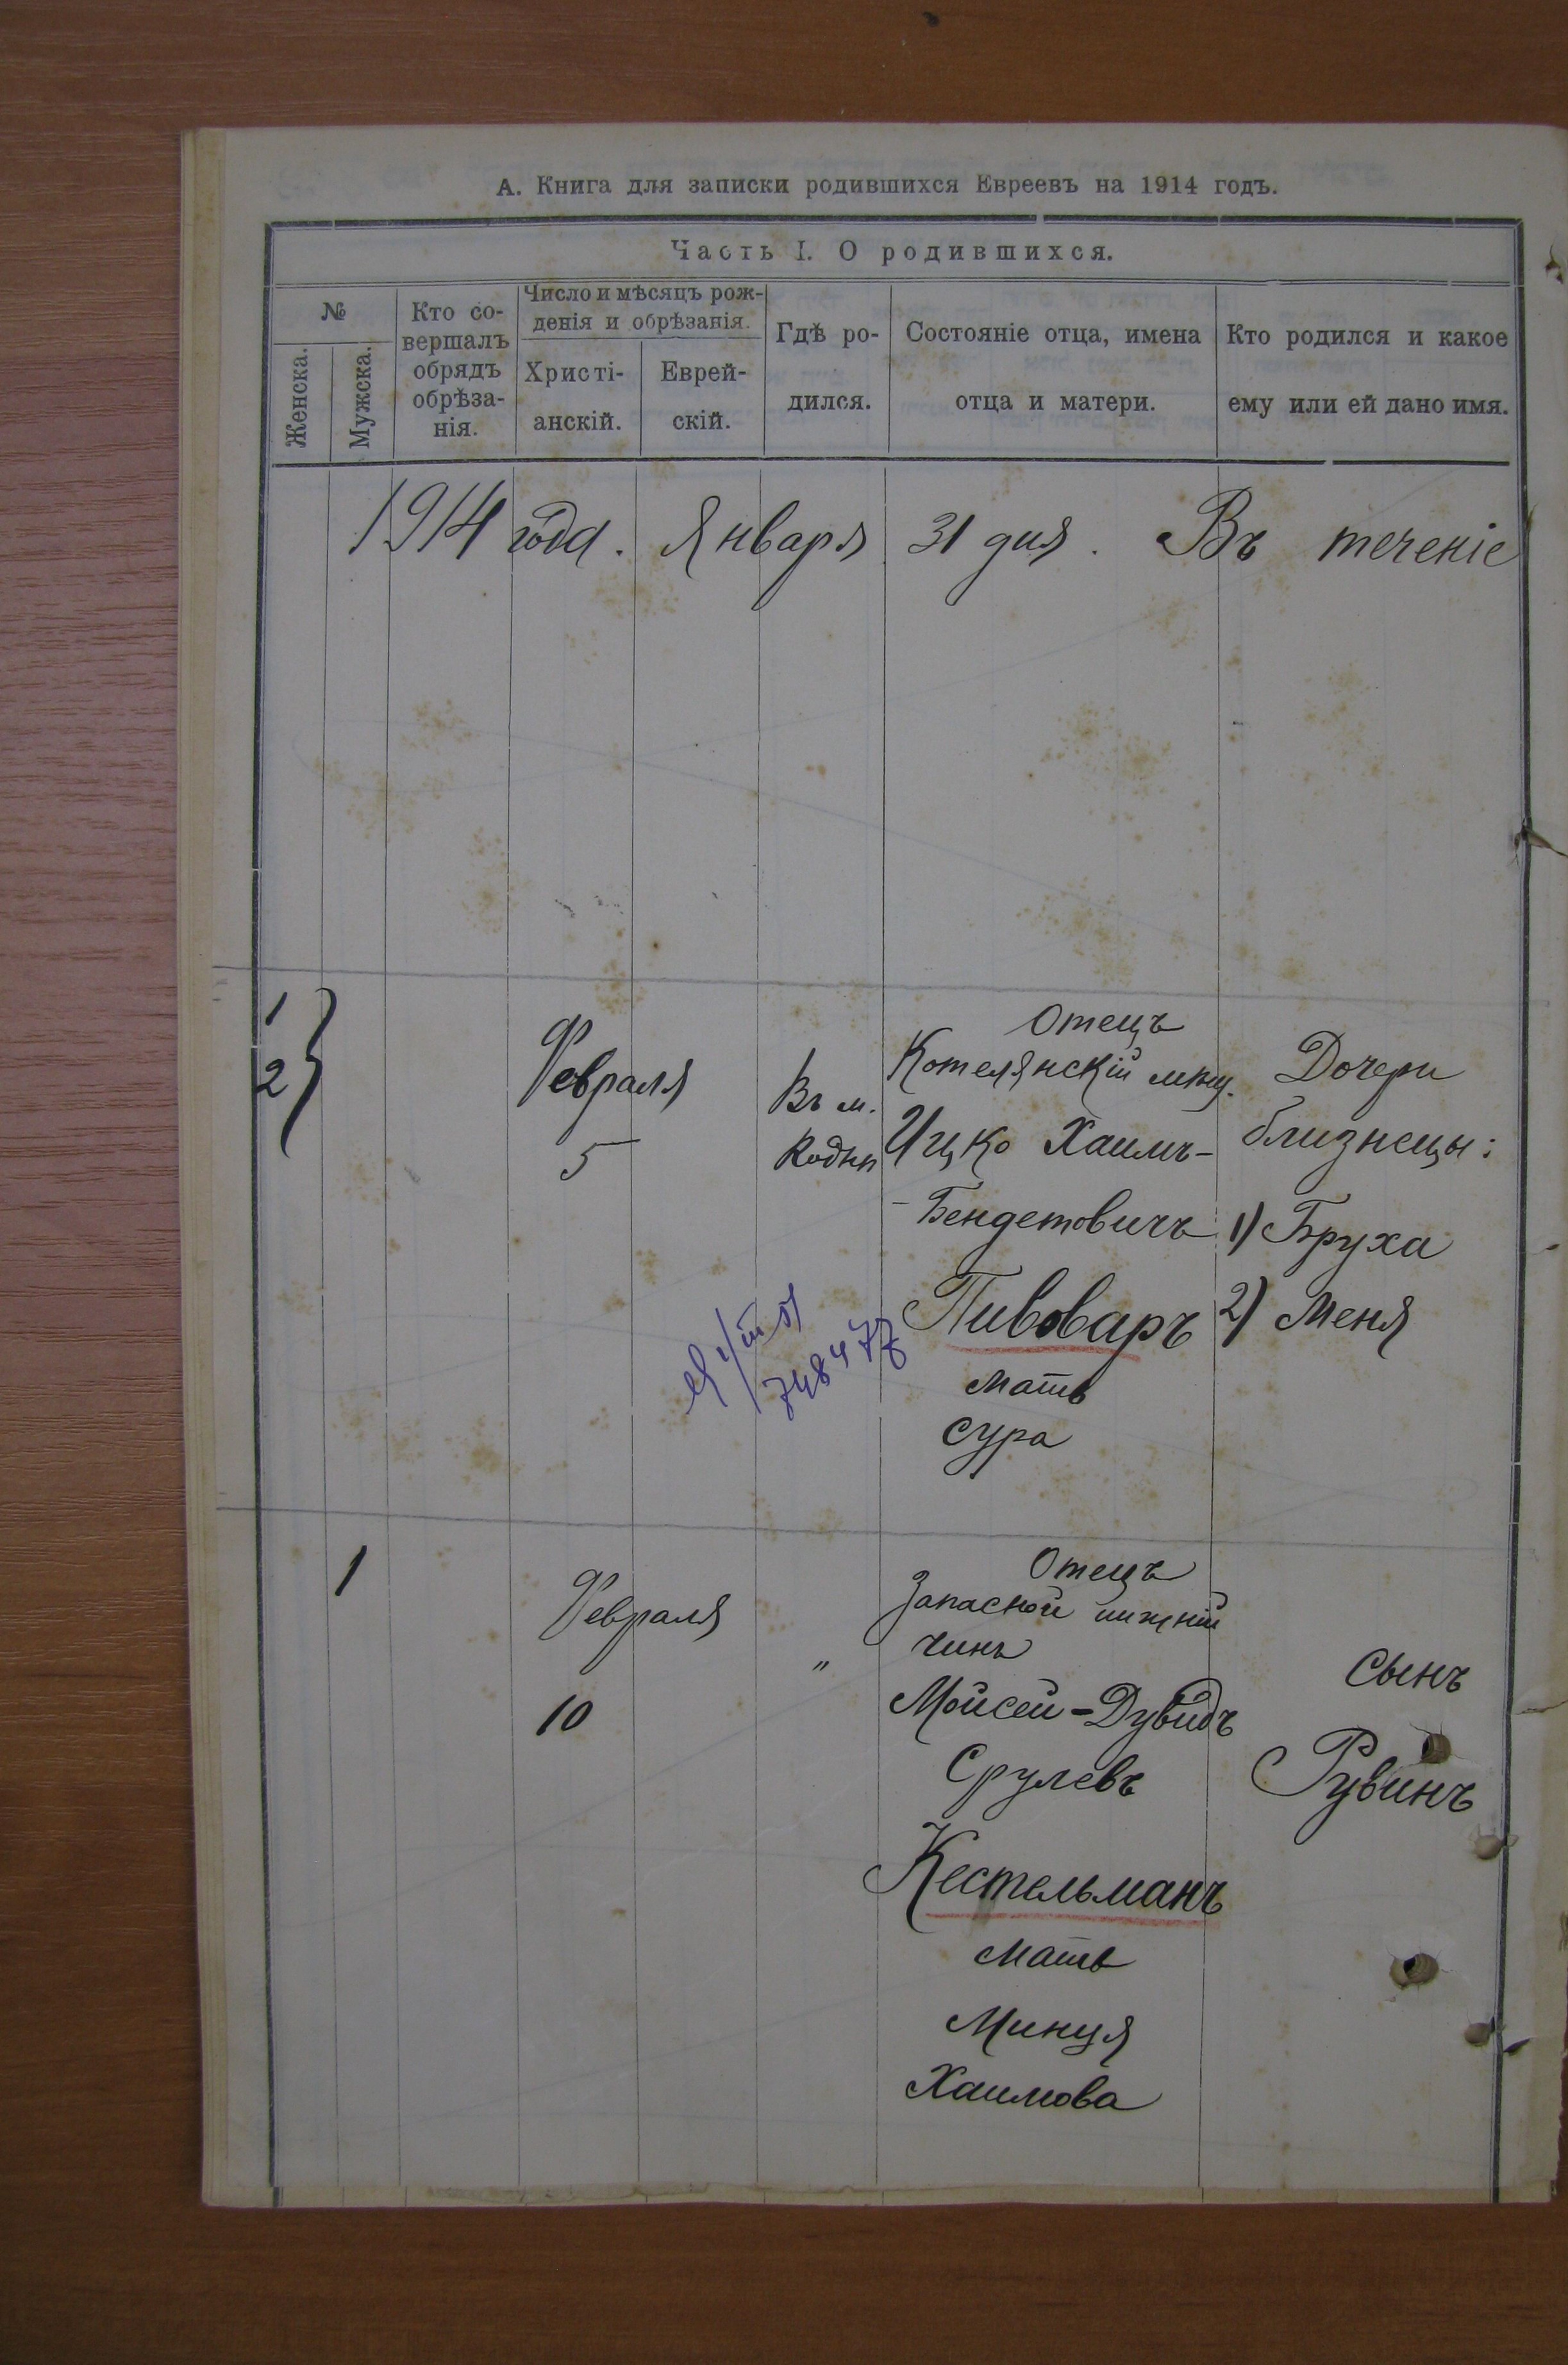 А. Книга для записки родившихся Евреевъ на 1914 годъ.
Часть I. О родившихся.
№
Женска.
Мужска.
Кто со-
вершалъ
обрядъ
обрѣза-
нія.
Число и мѣсяцъ рож-
денія и обрѣзанія.
Христі-
анскій.
Еврей-
скій.
Гдѣ ро-
дился.
Состояніе отца, имена
отца и матери.
Кто родился и какое
ему или ей дано имя.
1914 года. Января 31 дня. Въ теченіе
1
2
Февраля
5
Въ м.
Коднѣ
Отецъ
Котелянскій мѣщ.
Ицко Хаимъ-
-Бендетовичъ
Пивоваръ
мать
Сура
Дочери
близнецы:
1) Бруха
2) Меня
748477
1
Февраля
10
"
Отецъ
Запасной нижній
чинъ
Мойсей-Дувидъ
Срулевъ
Кестельманъ
мать
Минця
Хаимова
Сынъ
Рувинъ